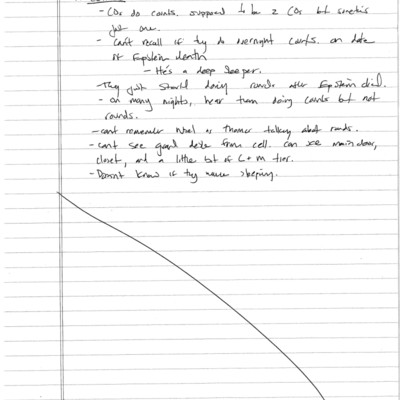 - COs do counts. supposed to be 2 COs but sometimes
just one.
- Can't recall if they do overnight counts. on date
of Epstein death
- He's a deep sleeper.
They just started doing rounds after Epstein died.
- on many nights, hear them doing counts but not
rounds.
- can't remember Noel or Thomas talking about rounds.
- can't see guard desk from cell. can see main door,
closet, and a little bit of L + M tier.
- Doesn't know if they were sleeping.